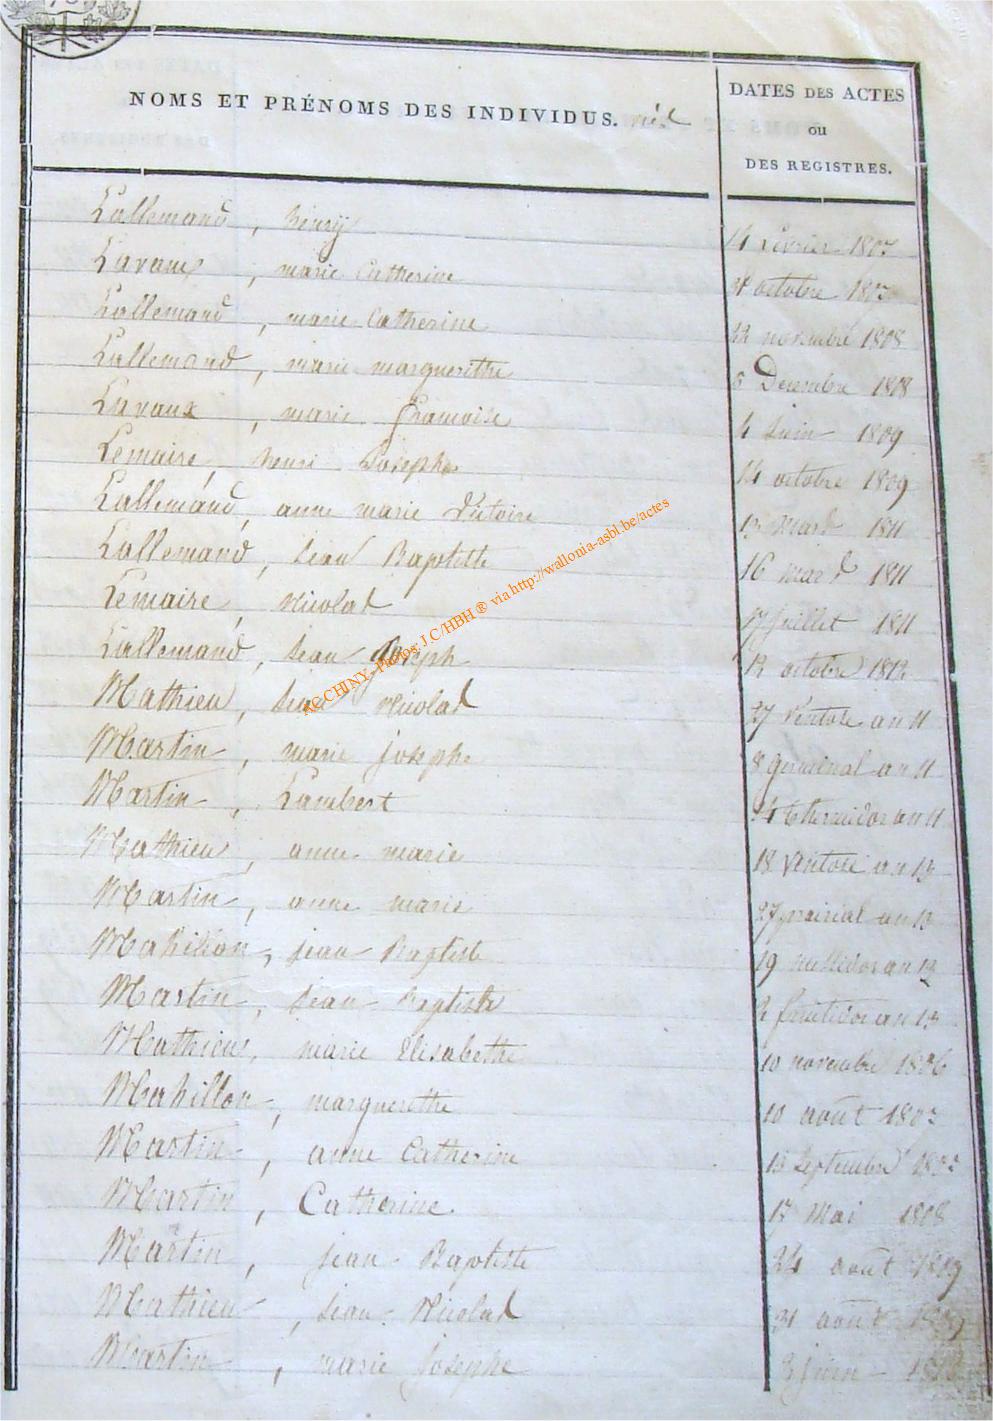 NOMS ET PRÉNOMS DES INDIVIDUS. nés
DATES DES ACTES
OU
DES REGISTRES.
Lallemand, henry 14 février 1807
Lavaux, marie Catherine octobre 1807
Lallemand, marie Catherine 22 novembre 1808
Lallemand, marie marguerithe 6 Decembre 1808
Lavaux, marie francoise 4 Juin 1809
Lemaire, henri Josephe 14 octobre 1809
Lallemand, anne marie Victoire 13 mars 1811
Lallemand, Jean Baptiste 16 mars 1811
Lemaire, Nicolas 17 Juillet 1811
Lallemand, Jean Joseph 12 octobre 1812
Mathieu, Jean Nicolas 27 Ventose an 11
Martin, marie josephe 8 germinal an 11
Martin, Lambert 14 thermidor an 11
Mathieu, anne marie 18 Ventose an 13
Martin, anne marie 27 prairial an 13
Mahillon, jean Baptiste 19 messidor an 13
Martin, Jean Baptiste 2 fructidor an 13
Mathieu, marie Elisabethe 10 novembre 1806
Mahillon, marguerithe 10 août 1807
Martin, anne Catherine 13 Septembre 1807
Martin, Catherine 17 Mai 1808
Martin, jean Baptiste 24 août 1809
Mathieu, Jean Nicolas 31 août 1809
Martin, marie josephe 3 juin
AC CHINY - Photos: J.C/HBH ® via http://wallonia-asbl.be/actes